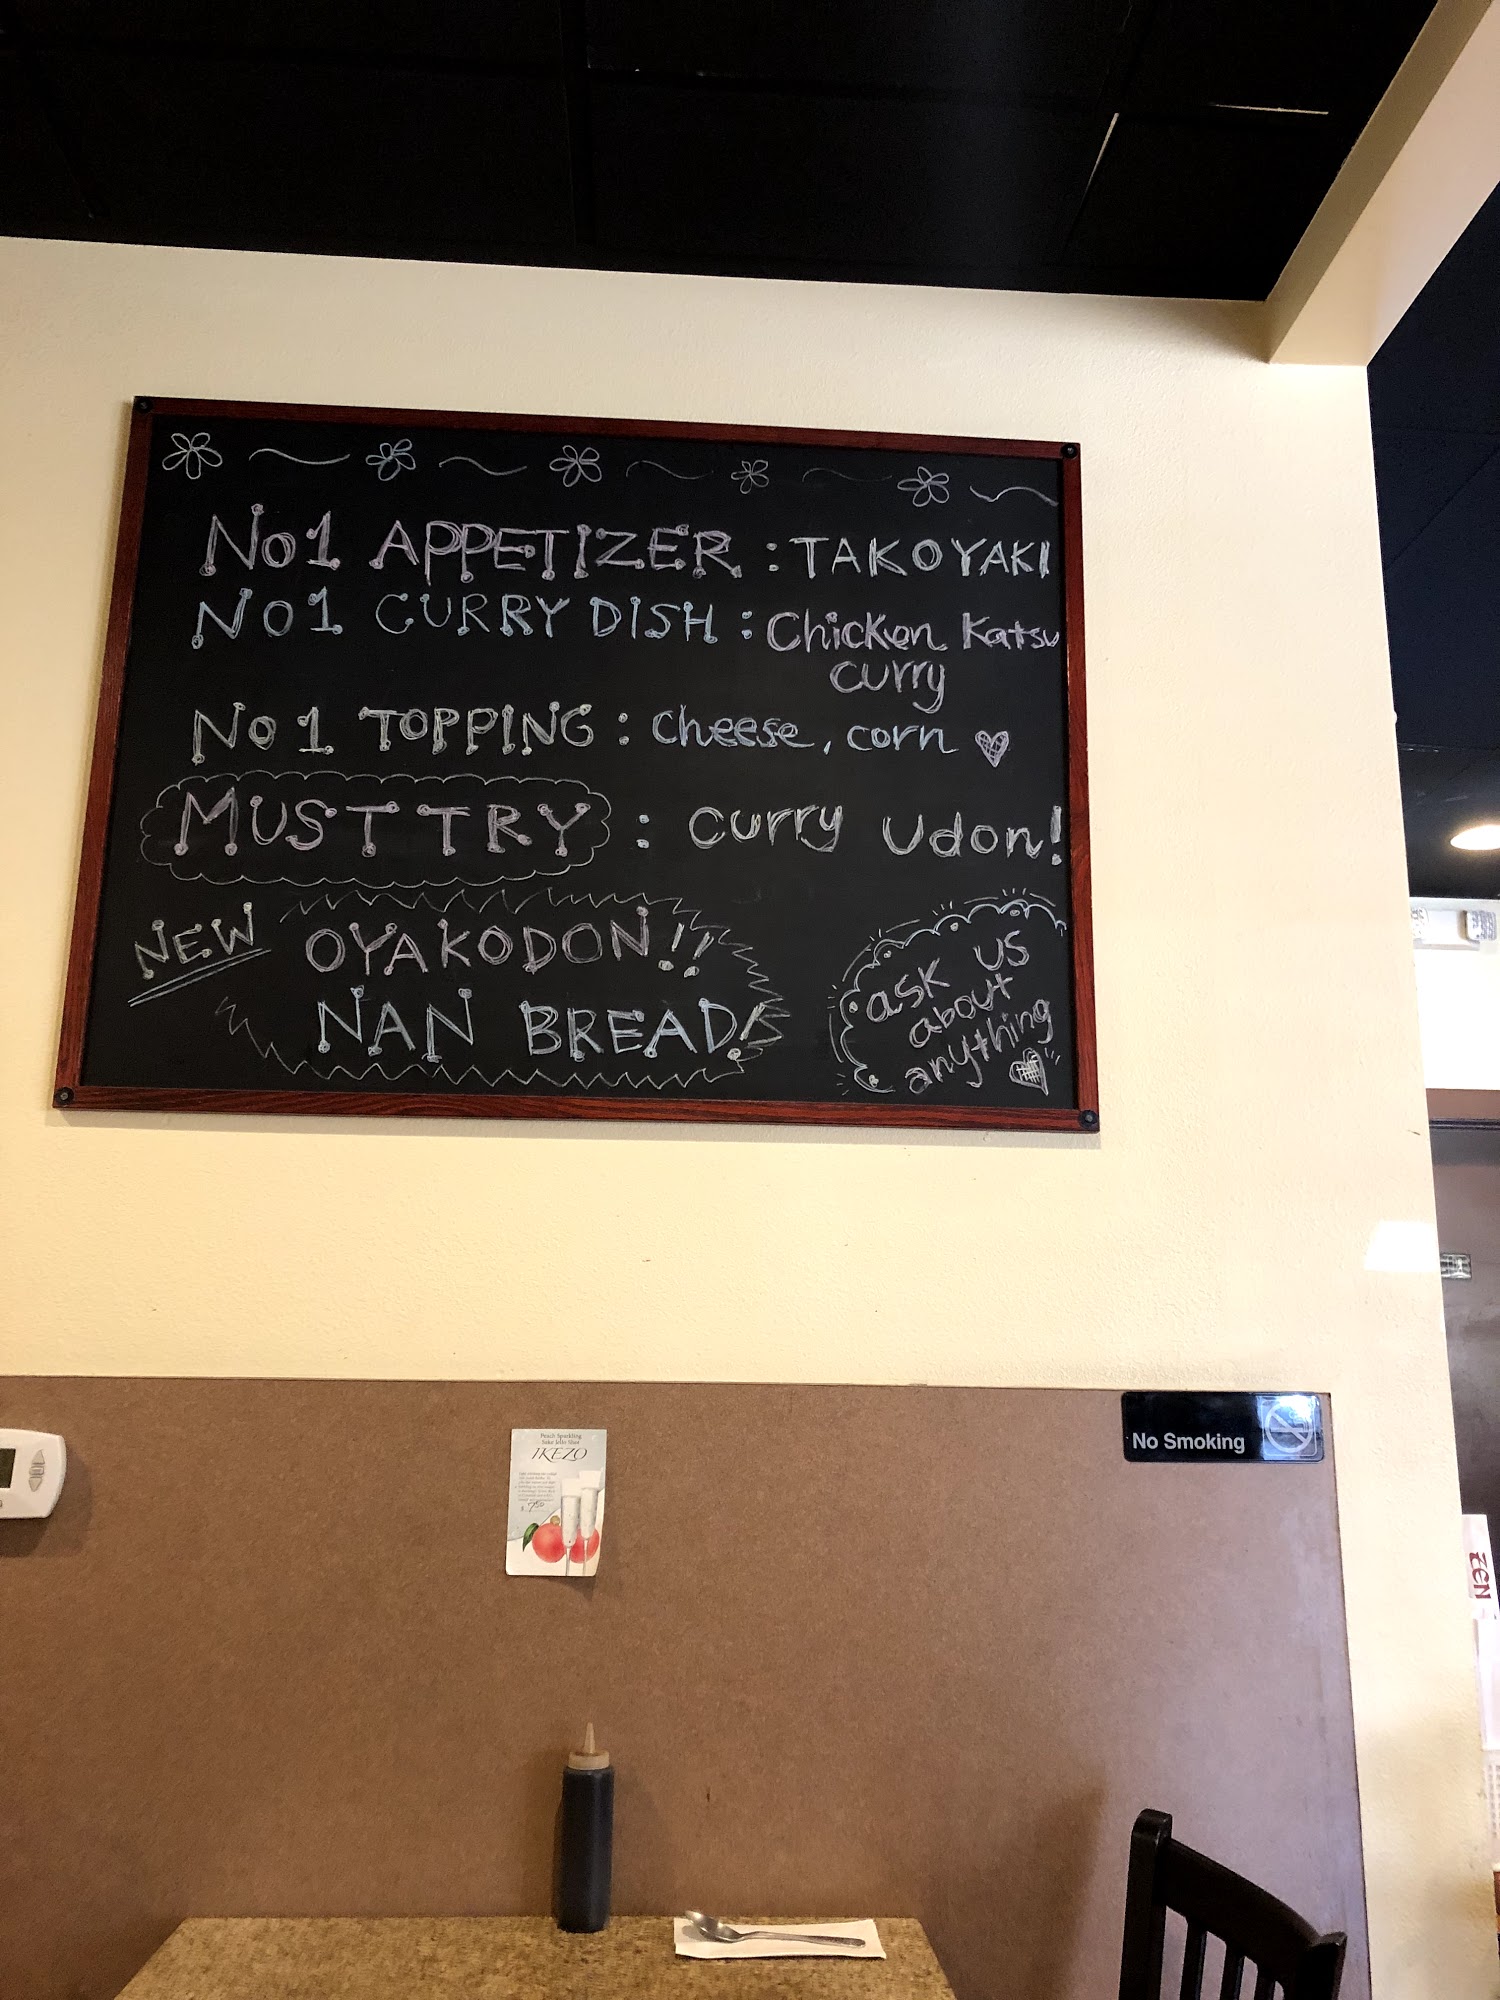 No1 APPETIZER : TAKOYAKI
No1 CURRY DISH : Chicken Katsu
curry
No1 TOPPING : cheese, corn
MUST TRY : curry Udon!
NEW OYAKODON!!
NAN BREAD!
ask us
about
anything
Peach Sparkling
Sake Jello Shot
IKEZO
$7.50
No Smoking
ZEN